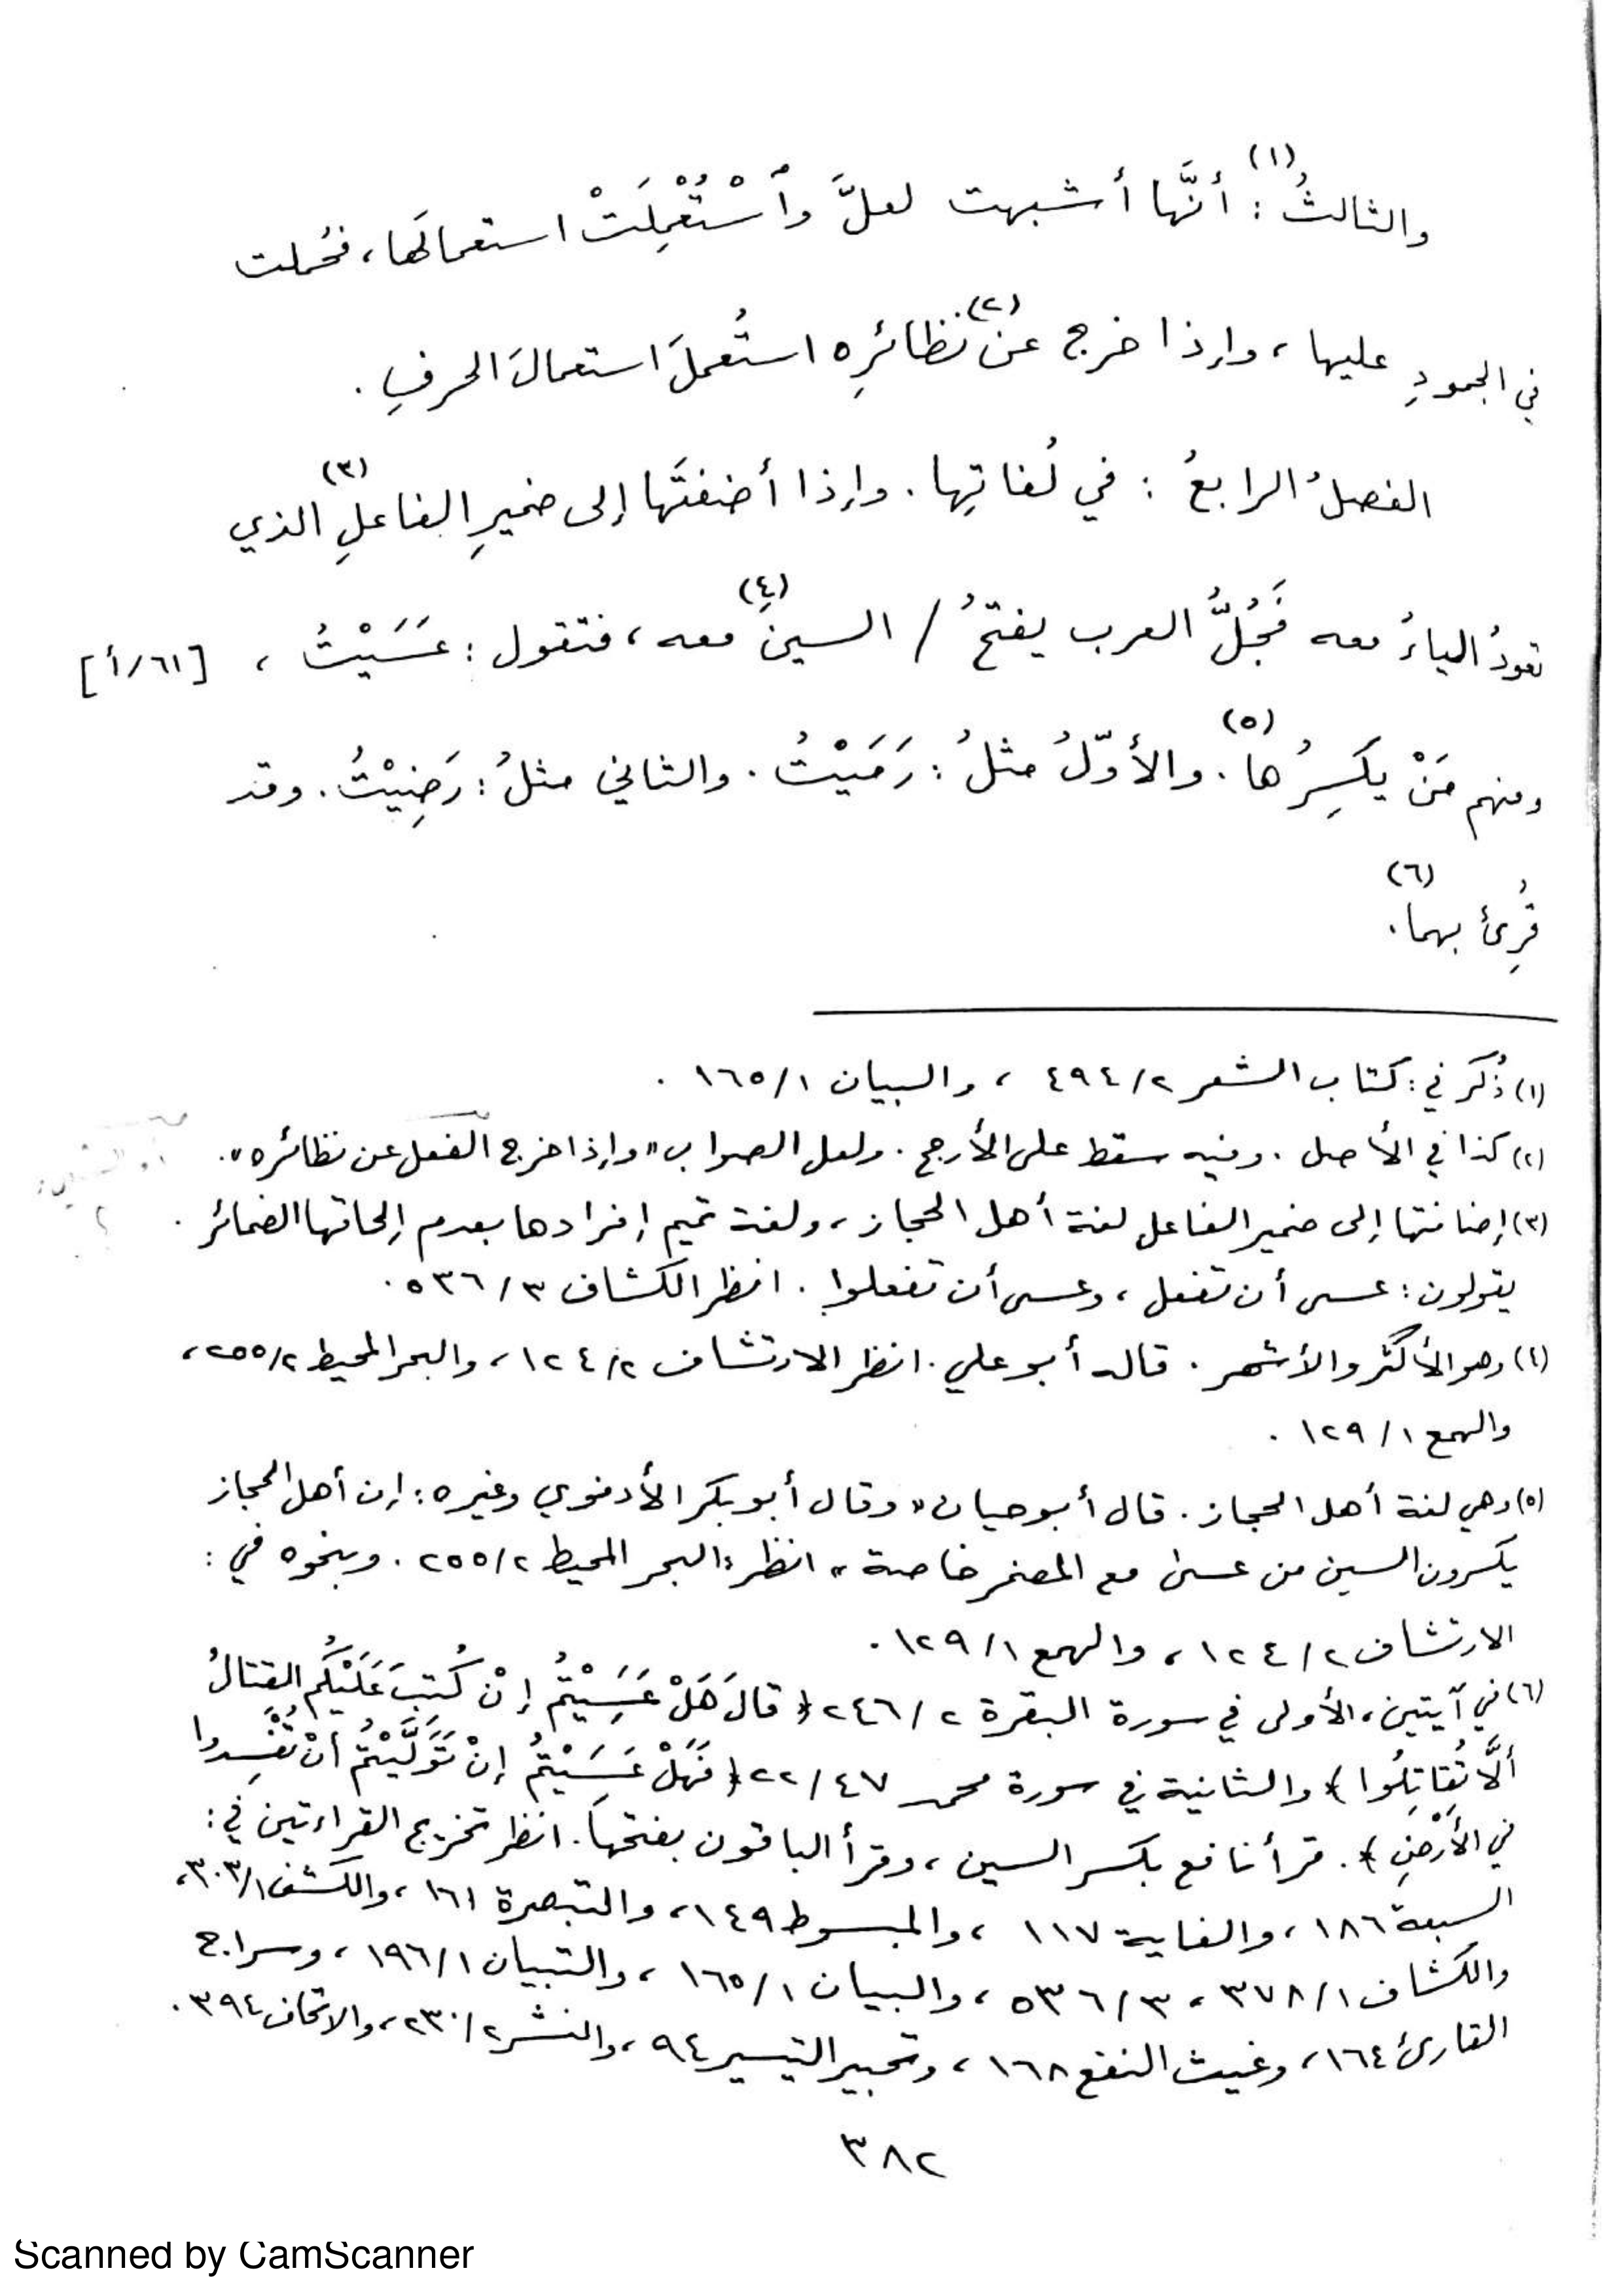 والثالثُ(١): أنَّها أشبهت لعلَّ وٱسْتُعْمِلَتْ استعمالَها، فحُملت
في الجمودِ عليها، وإذا خرج عن(٢) نظائرِه استُعملَ استعمالَ الحرفِ.
الفصلُ الرابعُ: في لُغاتِها. وإذا أضفتَها إلى ضميرِ الفاعلِ(٣) الذي
تعودُ الياءُ معه فَجُلُّ العرب يفتحُ / السينَ(٤) معه، فتقول: عَسَيْتُ، [٦١/أ]
ومنهم مَنْ يكسِرُها(٥). والأوّلُ مثلُ: رَمَيْتُ. والثاني مثلُ: رَضِيْتُ. وقد
قُرِئَ بهما(٦).
(١) ذُكَر في: كتاب الشعر ٤٩٤/٢، والبيان ١٦٥/١.
(٢) كذا في الأصل. وفيه سقط على الأرجح. ولعل الصواب «وإذا خرج الفعل عن نظائره».
(٣) إضافتها إلى ضمير الفاعل لغة أهل الحجاز، ولغة تميم إفرادها بعدم إلحاقها الضمائر.
يقولون: عسى أن تفعل، وعسى أن تفعلوا. انظر الكشاف ٥٣٦/٣.
(٤) وهو الأكثر والأشهر. قاله أبو علي. انظر الارتشاف ١٢٤/٢، والبحر المحيط ٢٥٥/٢،
والهمع ١٢٩/١.
(٥) وهي لغة أهل الحجاز. قال أبو حيان «وقال أبو بكر الأدفوي وغيره: إن أهل الحجاز
يكسرون السين من عسى مع المضمر خاصة» انظر: البحر المحيط ٢٥٥/٢. وبنحوه في:
الارتشاف ١٢٤/٢، والهمع ١٢٩/١.
(٦) في آيتين، الأولى في سورة البقرة ٢٤٦/٢ ﴿قالَ هَلْ عَسَيْتُمْ إنْ كُتِبَ عَلَيْكُم القِتالُ
ألَّا تُقَاتِلُوا﴾ والثانية في سورة محمد ٢٢/٤٧ ﴿فَهَلْ عَسَيْتُمْ إنْ تَوَلَّيْتُمْ أنْ تُفْسِدوا
في الأرْضِ﴾. قرأ نافع بكسر السين، وقرأ الباقون بفتحها. انظر تخريج القراءتين في:
السبعة ١٨٦، والغاية ١١٧، والمبسوط ١٤٩، والتبصرة ١٦١، والكشف ٣٠٣/١،
والكشاف ٣٧٨/١، ٥٣٦/٣، والبيان ١٦٥/١، والتبيان ١٩٦/١، وسراج
القارئ ١٦٤، وغيث النفع ١٦٨، وتحبير التيسير ٩٤، والنشر ٢٣٠/٢، والاتحاف ٣٩٤.
٣٨٢
Scanned by CamScanner